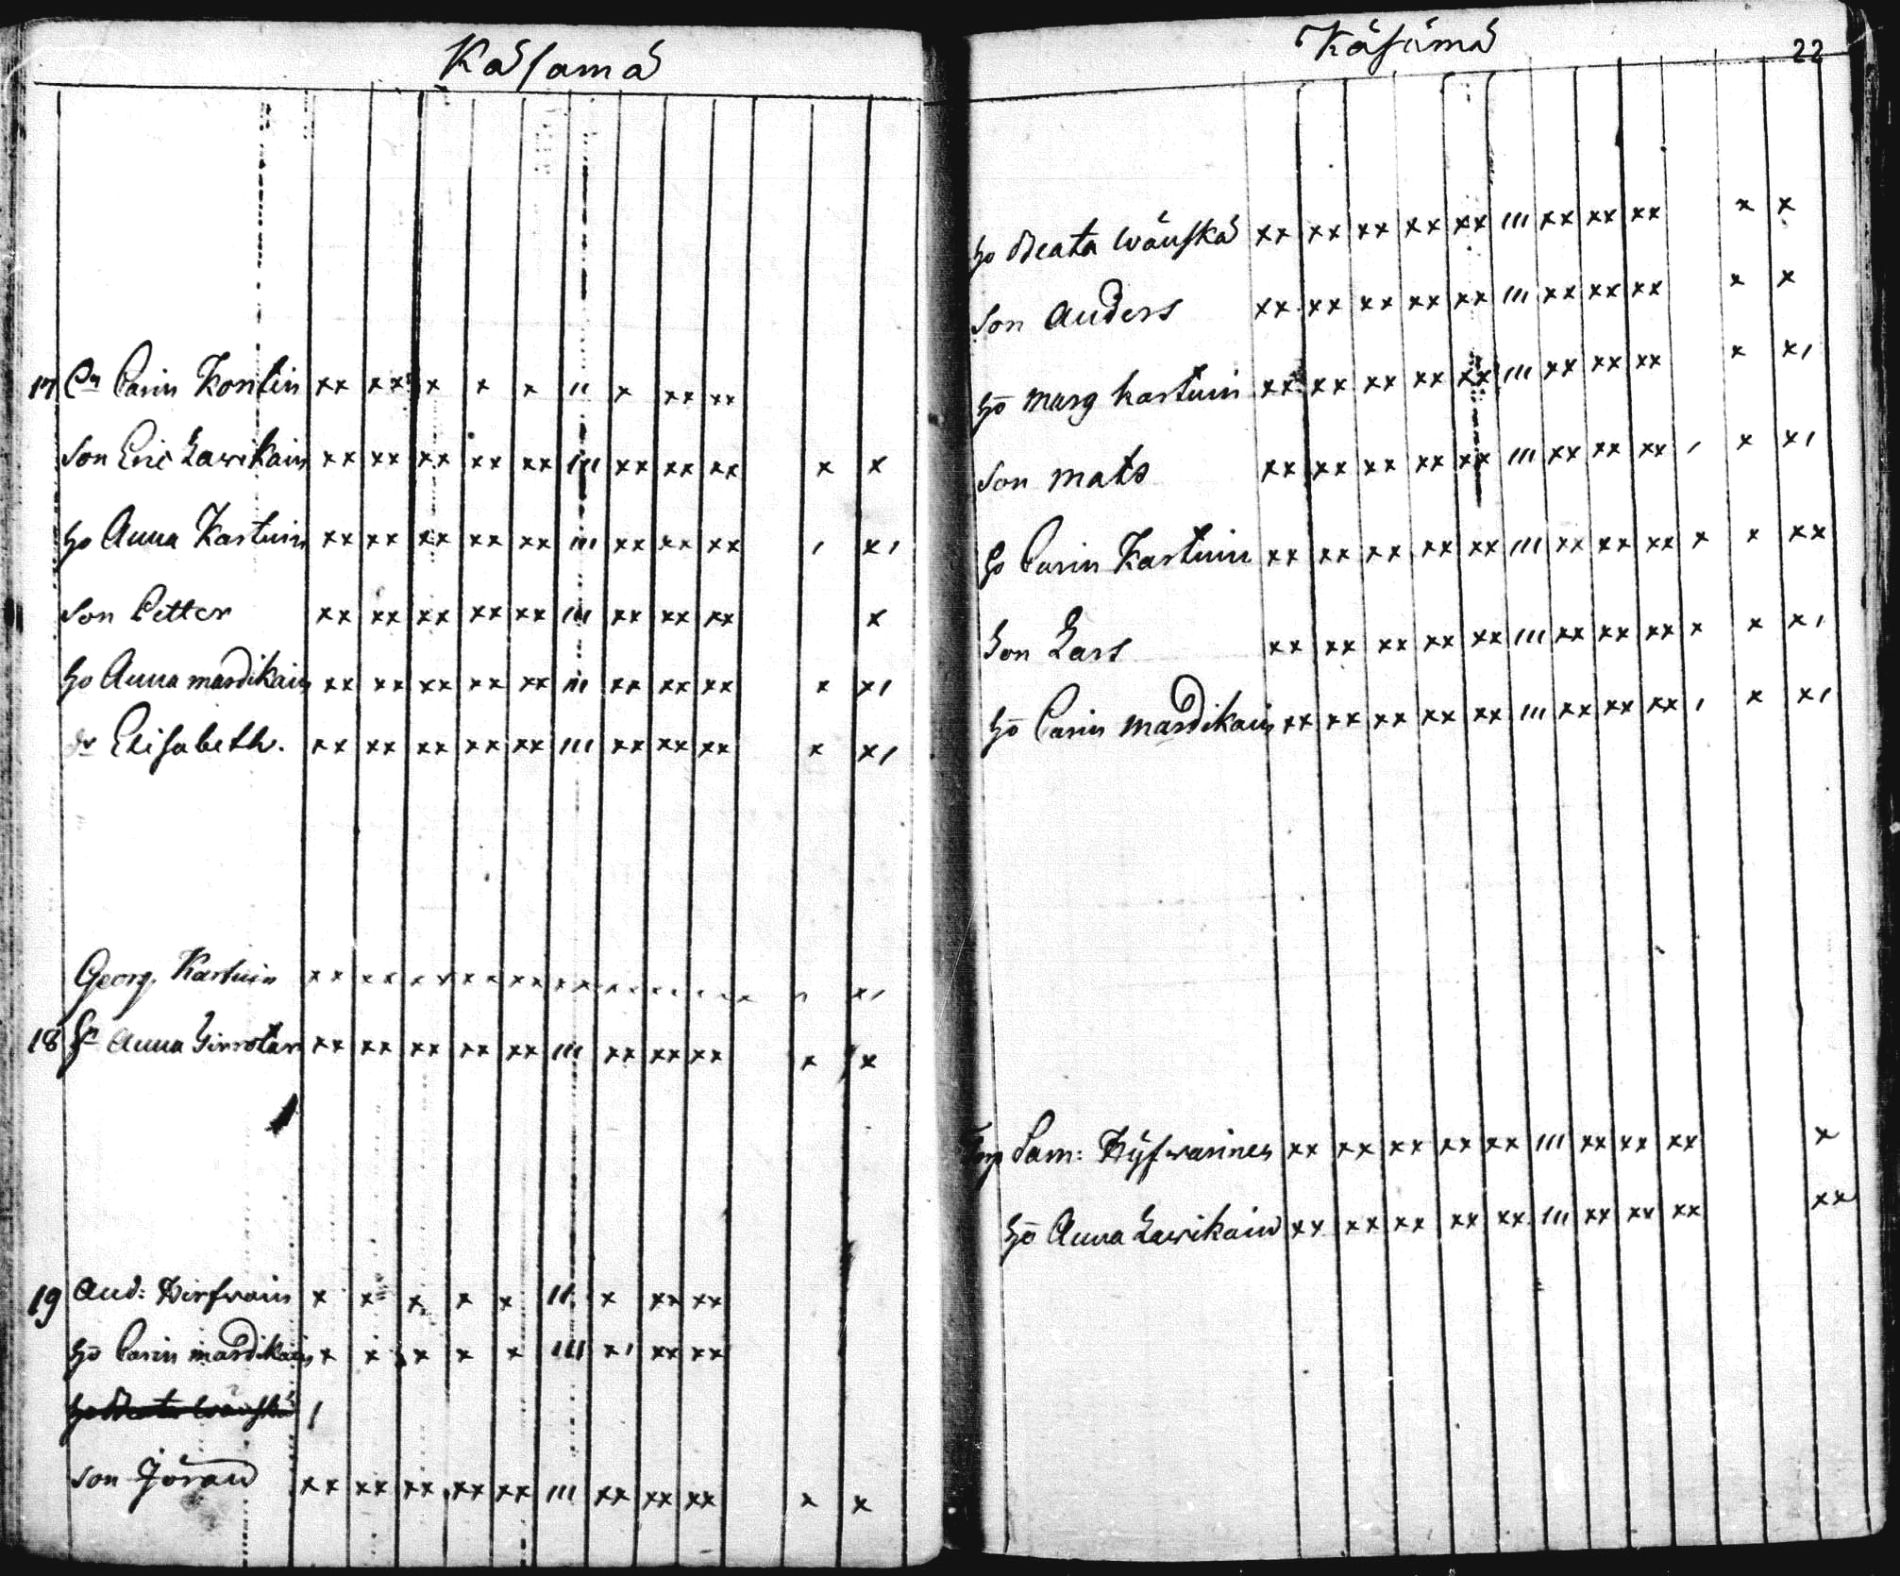 Käsämä
17 Ca Carin Kontin xx xx x x x 11 x xx xx
Son Eric Lawikain xx xx xx xx xx 111 xx xx xx x x
ho Anna Kastuin xx xx xx xx xx 111 xx xx xx , x,
Son Petter xx xx xx xx xx 111 xx xx xx x
ho Anna mardikain xx xx xx xx xx 111 xx xx xx x x,
dr Elisabeth. xx xx xx xx xx 111 xx xx xx x x,
Georg. Kastuin
18 Anna xx xx xx xx xx 111 xx xx xx x x
19 And: x x x x x 11 x xx xx
ho Carin mardikain x x x x x 111 x, xx xx
ho Beata Wänskä
Son Jöran xx xx xx xx xx 111 xx xx xx x x
Käsämä 22
ho Beata Wänskä xx xx xx xx xx 111 xx xx xx x x
Son Anders xx xx xx xx xx 111 xx xx xx x x
ho Marg Kastuin xx xx xx xx xx 111 xx xx xx x x,
Son Mats xx xx xx xx xx 111 xx xx xx , x x,
ho Carin Kastuin xx xx xx xx xx 111 xx xx xx x x xx
Son Lars xx xx xx xx xx 111 xx xx xx x x x,
ho Carin mardikain xx xx xx xx xx 111 xx xx xx , x x,
Sam: xx xx xx xx xx 111 xx xx xx x
ho Anna Lawikain xx xx xx xx xx 111 xx xx xx xx